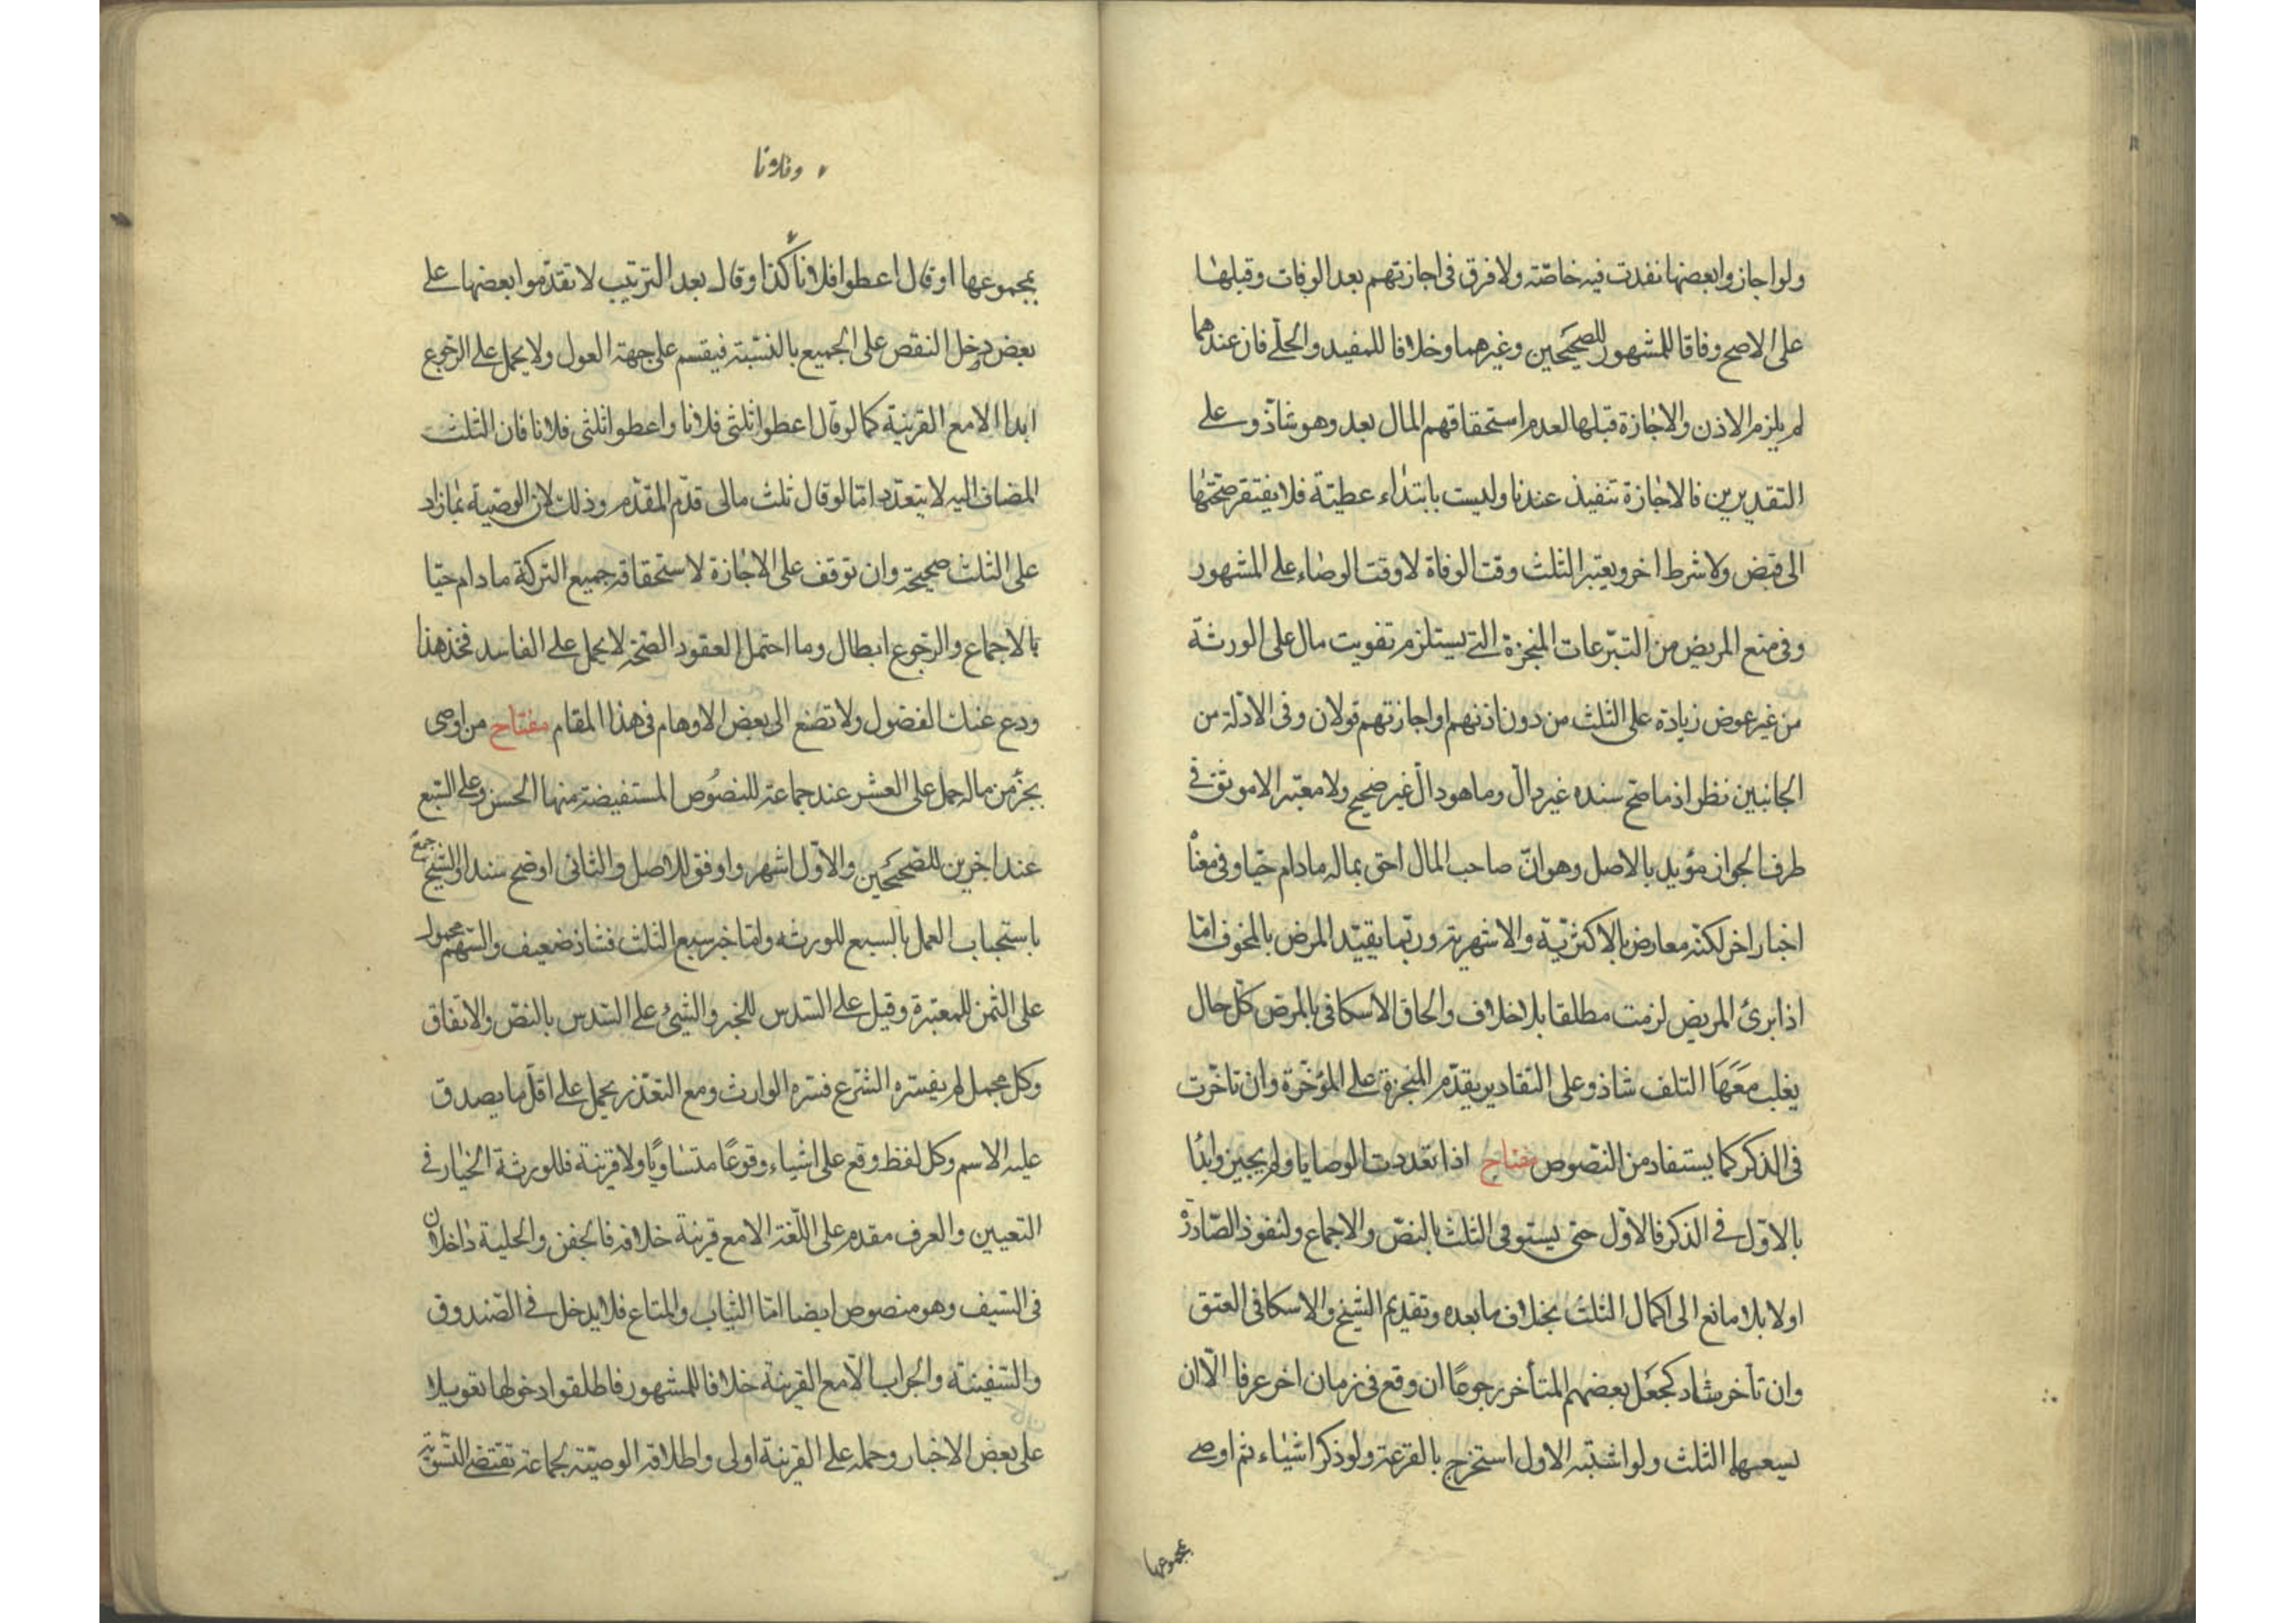 ولو اجازوا بعضها نفدت فيه خاصّة ولا فرق فى اجازتهم بعد الوفات وقبلها
على الاصح وفاقا للمشهور للصحيحين وغيرهما وخلافا للمفيد والحلّى فان عندهما
لم يلزم الاذن والاجازة قبلها لعدم استحقاقهم المال بعد وهو شاذّ وعلى
التقديرين فالاجازة تنفيذ عندنا وليست بابتداء عطيّة فلا يفتقر صحّتها
الى قبض ولا شرط اخر ويعتبر الثلث وقت الوفاة لا وقت الوصاء على المشهور
وفى منع المريض من التبرّعات المنجزة التى يستلزم تفويت مال على الورثة
من غير عوض زيادة على الثلث من دون اذنهم او اجازتهم قولان وفى الادلّة من
الجانبين نظر اذ ما صحّ سنده غير دالّ وما هو دالّ غير صحيح ولا معتبر الا موثق فى
طرف الجواز مؤيد بالاصل وهو انّ صاحب المال احق بماله ما دام حيّا وفى معناه
اخبار اخر لكنّه معارض بالاكثريّة والاشهرية وربّما يقيّد المرض بالمخوف امّا
اذا برئ المريض لزمت مطلقا بلا خلاف والحاق الاسكافى بالمرض كلّ حال
يغلب معَهَا التلف شاذ وعلى التقادير يقدّم المنجزة على المؤخّرة وان تاخّرت
فى الذكر كما يستفاد من النّصوص مفتاح اذا تعددت الوصايا ولم يجيزوا بدُا
بالاوّل فى الذكر فالاوّل حتى يستوفى الثلث بالنصّ والاجماع ولنفوذ الصّادرْ
اولا بلا مانع الى اكمال الثلث بخلاف ما بعده وتقديم الشيخ والاسكافى العتق
وان تأخر شاذ كجعَل بعضهم المتأخر رجوعًا ان وقع فى زمان اخر عرفا الّا ان
يسعها الثلث ولو اشتبه الاول استخرج بالقرعة ولو ذكر اشياء ثم اوصى
بمجموعها
وفلانا
بمجموعها او قال اعطوا فلاناً كذا وقال بعد الترتيب لا تقدّموا بعضها على
بعض دخل النقص على الجميع بالنسبة فيقسم على جهة العول ولا يحمل على الرّجوع
ابدا الا مع القرينة كما لو قال اعطوا ثلثى فلانا واعطوا ثلثى فلانا فان الثلث
المضاف اليه لا يتعدّد امّا لو قال ثلث مالى قدّم المقدّم وذلك لان الوصيّة بما زاد
على الثلث صحيحة وان توقف على الاجازة لاستحقاقه جميع التركة ما دام حيّا
بالاجماع والرّجوع ابطال وما احتمل العقود الصّحة لا يحمل على الفاسد فخذ هذا
ودع عنك الفضول ولا تضغ الى بعض الاوهام فى هذا المقام مفتاح من اوصى
بجزء من ماله حمل على العشر عند جماعة للنصُوص المستفيضة منها الحسن وعلى السّبع
عند اخرين للصّحيحين والاوّل اشهر واوفق للاصل والثانى اوضح سندا والشيخ جمع
باستحباب العمل بالسبع للورثه وامّا خبر سبع الثلث فشاذ ضعيف والسّهم محمول
على الثمن للمعتبرة وقيل على السّدس للخبر والشيئ على السّدس بالنصّ والاتفاق
وكل مجمل لم يفسّره الشّرع فسّره الوارث ومع التعذّر يحمل على اقلّ ما يصدق
عليه الاسم وكل لفظ وقع على اشياء وقوعًا متساويًا ولا قرينة فللورثة الخيار فى
التعيين والعرف مقدم على اللّغة الا مع قرينة خلافه فالجفن والحلية داخلان
فى السّيف وهو منصوص ايضا امّا الثياب والمتاع فلا يدخل فى الصّندوق
والسّفينة والجراب الّا مع القرينة خلافا للمشهور فاطلقوا دخولها تعويلا
على بعض الاخبار وحمله على القرينة اولى واطلاق الوصيّة لجماعة تقتضى التسّويّة